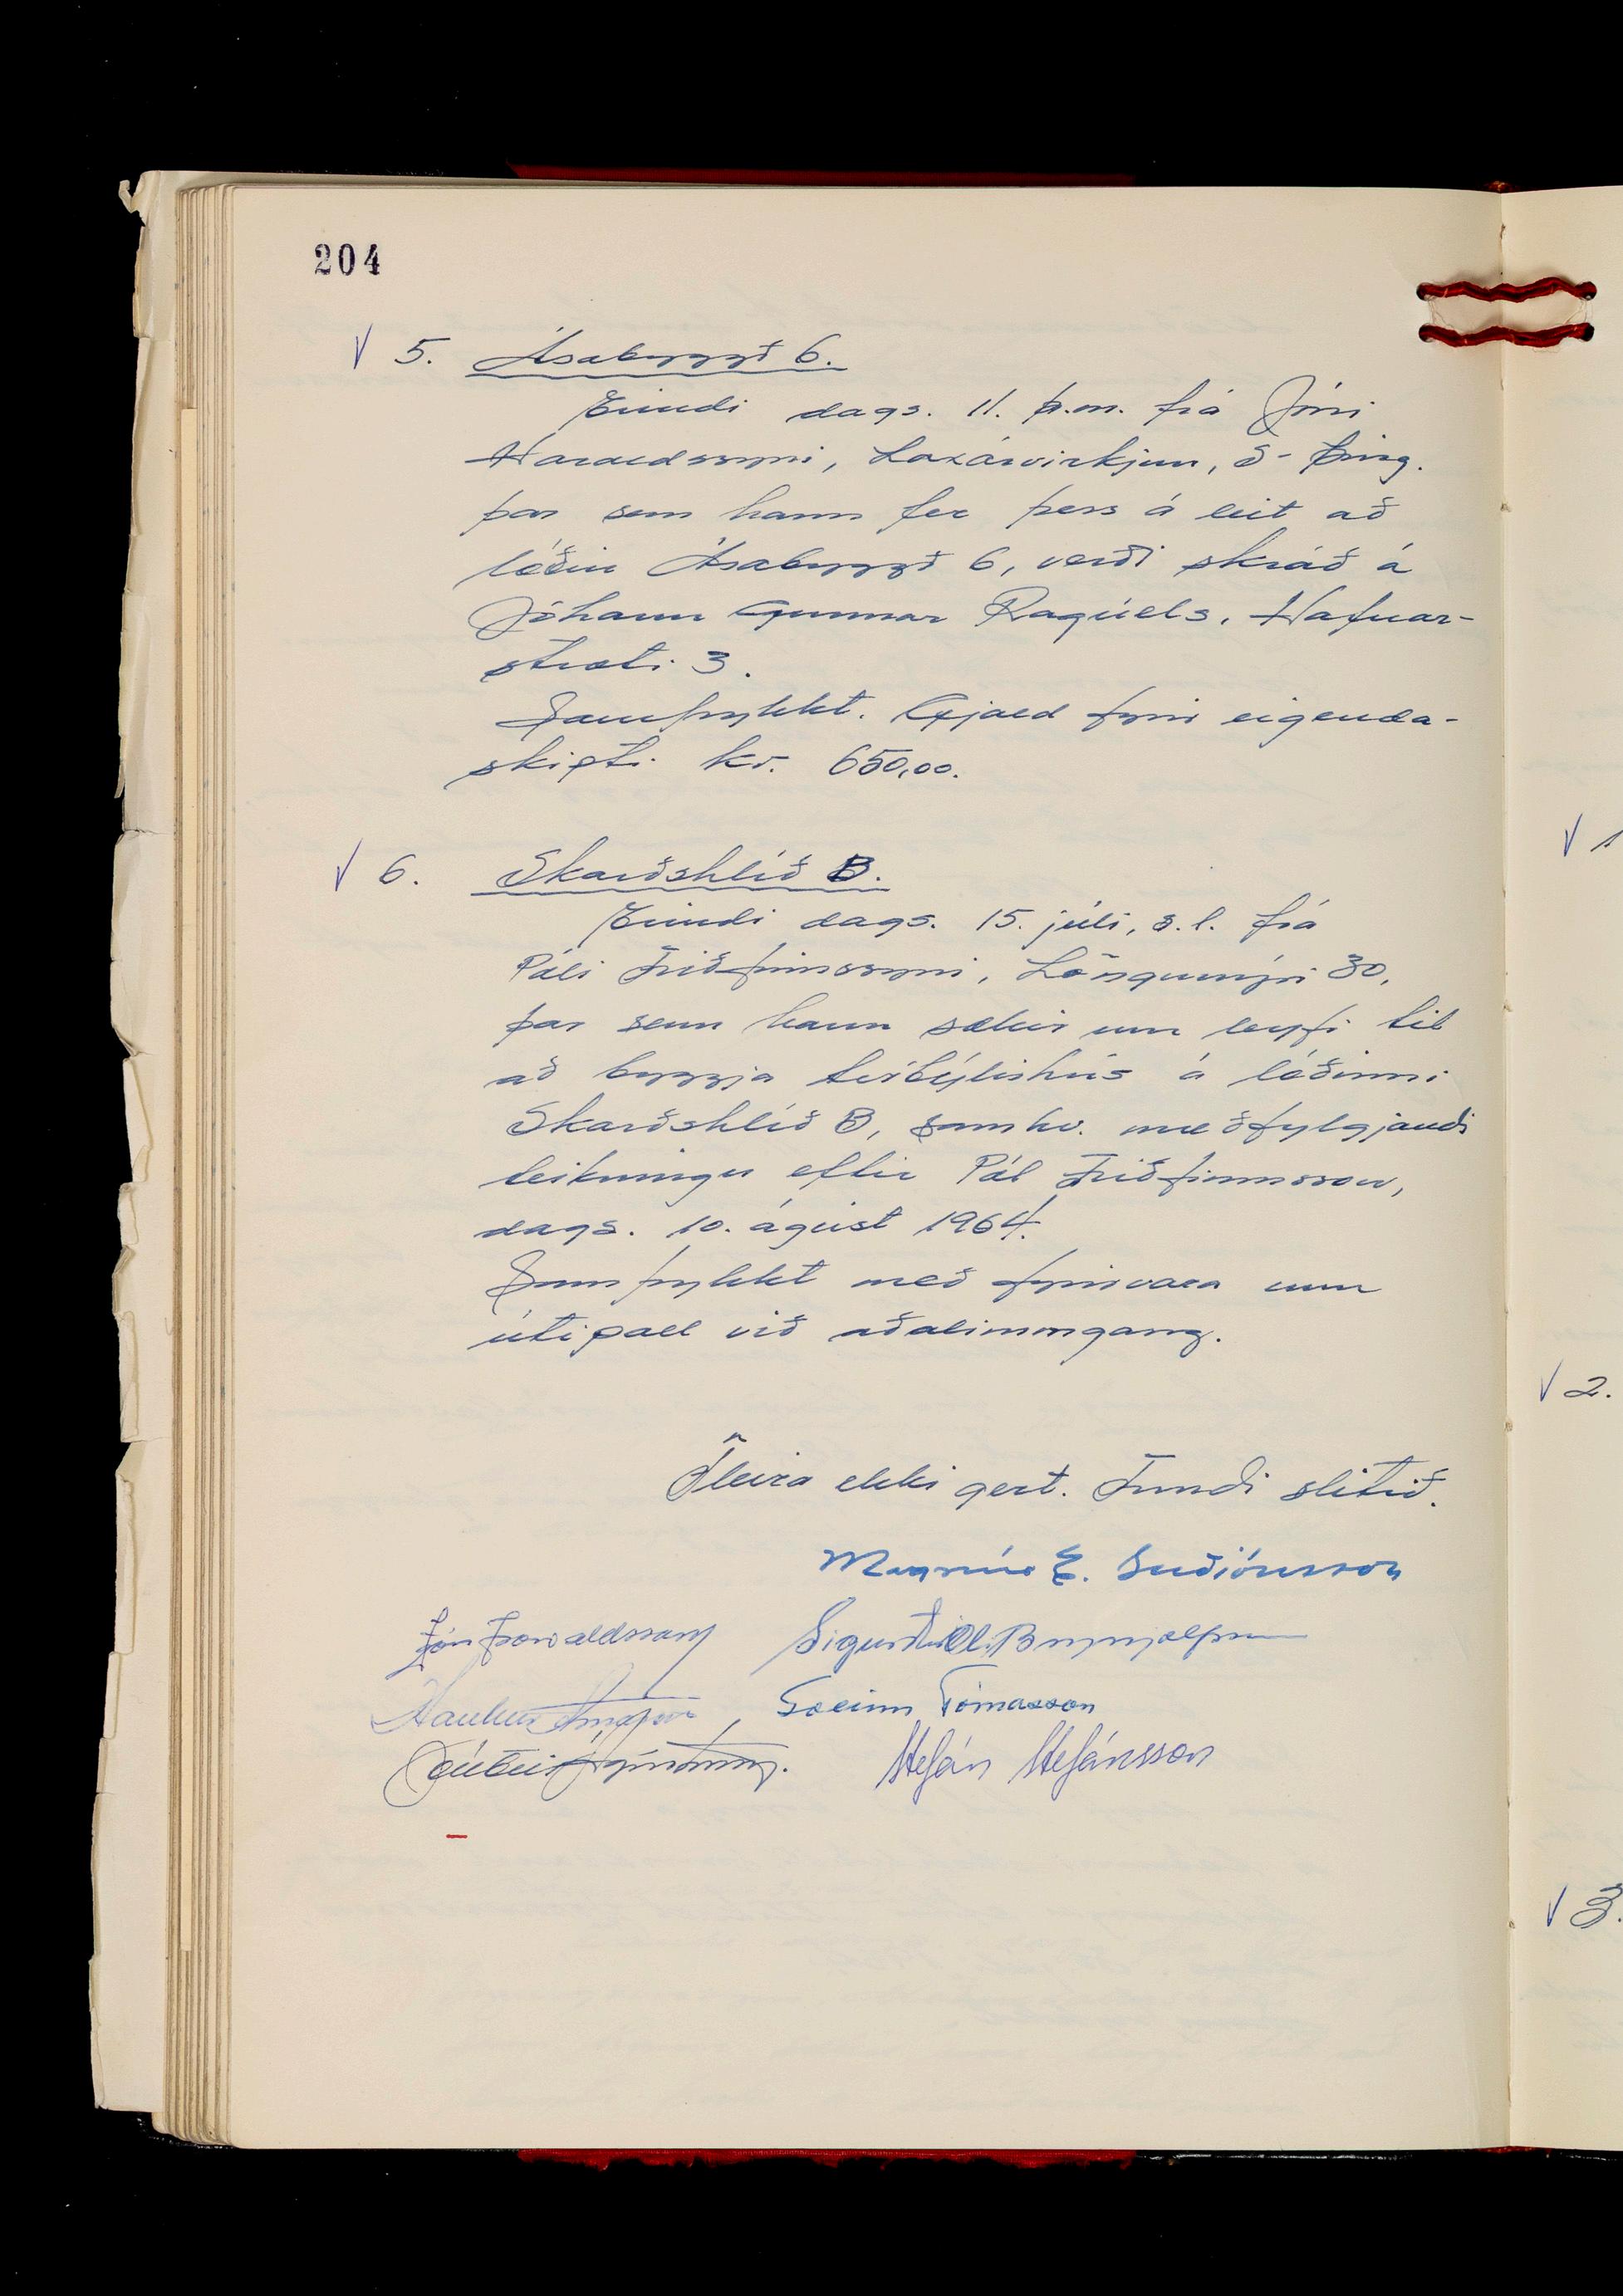 204
√ 5. Ásabyggð 6.
Erindi dags. 11. þ.m. frá Jóni
Haraldssyni, Laxárvirkjun, S-Þing.
þar sem hann fer þess á leit að
lóðin Ásabyggð 6, verði skráð á
Jóhann Gunnar Ragúels, Hafnar-
stræti 3.
Samþykkt. Gjald fyrir eigenda-
skipti kr. 650,00.
√ 6. Skarðshlíð B.
Erindi dags. 15. júlí, s.l. frá
Páli Friðfinnssyni, Löngumýri 30,
þar sem hann sækir um leyfi til
að byggja tvíbýlishús á lóðinni
Skarðshlíð B, samkv. meðfylgjandi
teikningu eftir Pál Friðfinnsson,
dags. 10. ágúst 1964.
Samþykkt með fyrirvara um
útipall við aðalinngang.
Fleira ekki gert. Fundi slitið.
Magnús E. Guðjónsson
Jón Þorvaldsson Sigurður Óli Brynjólfsson
Haukur Árnason Sveinn Tómasson
Stefán Stefánsson
√ 1
√ 2.
√ 3.